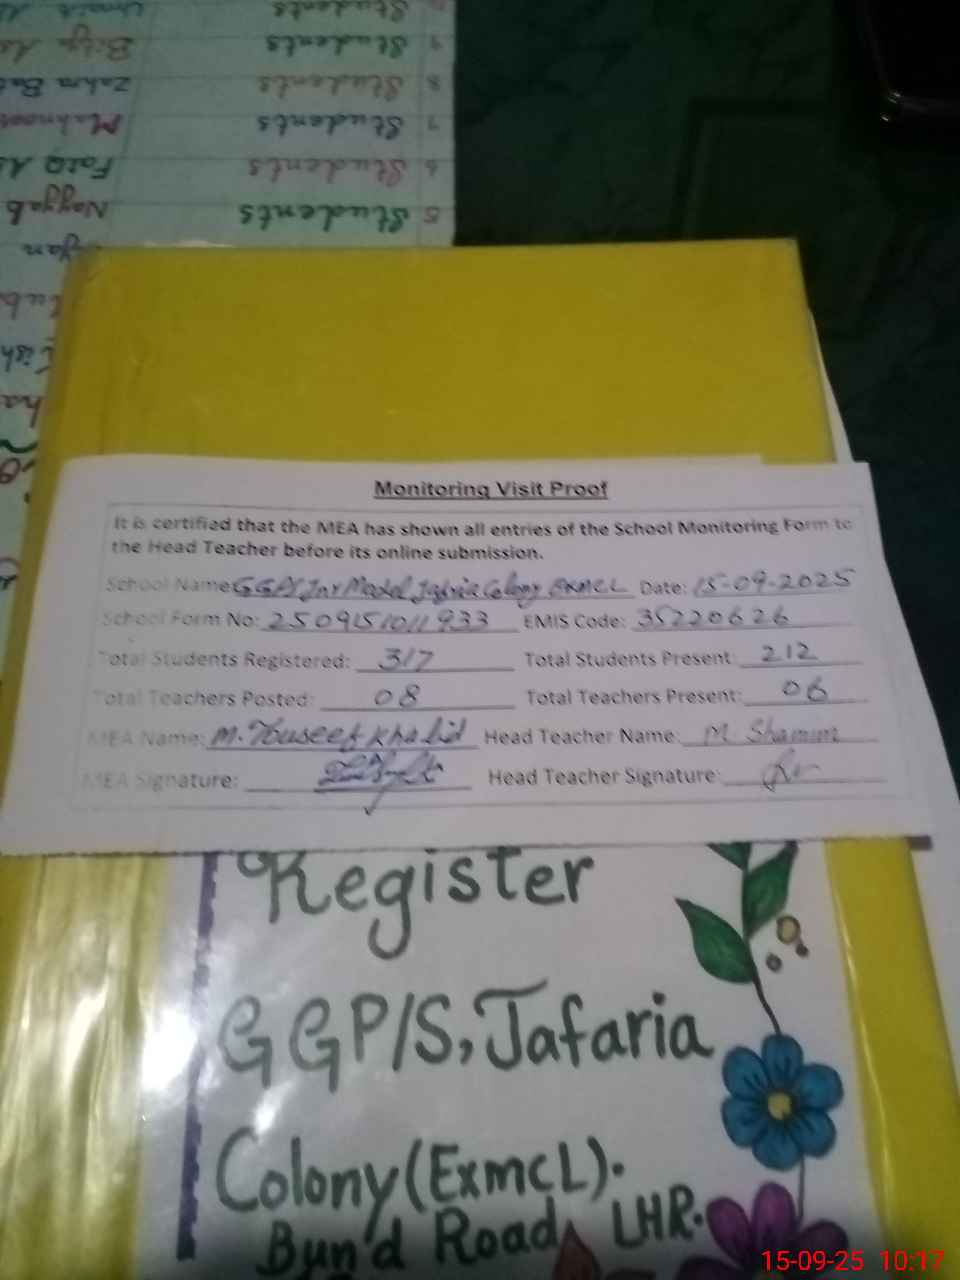 Students
9 Students Bity
8 Students Zahra Bat
7 Students Mahnoor
6 Students
5 Students Nayyab
Monitoring Visit Proof
It is certified that the MEA has shown all entries of the School Monitoring Form to
the Head Teacher before its online submission.
School Name: GGP/S Jnr Model Jafria Colony ExMCL Date: 15-09-2025
School Form No: 2509151011933 EMIS Code: 35220626
Total Students Registered: 317 Total Students Present: 212
Total Teachers Posted: 08 Total Teachers Present: 06
MEA Name: M. Touseef Khalid Head Teacher Name: M. Shamim
MEA Signature: Head Teacher Signature:
Register
GGP/S, Jafaria
Colony (ExmcL).
Bund Road LHR.
15-09-25 10:17